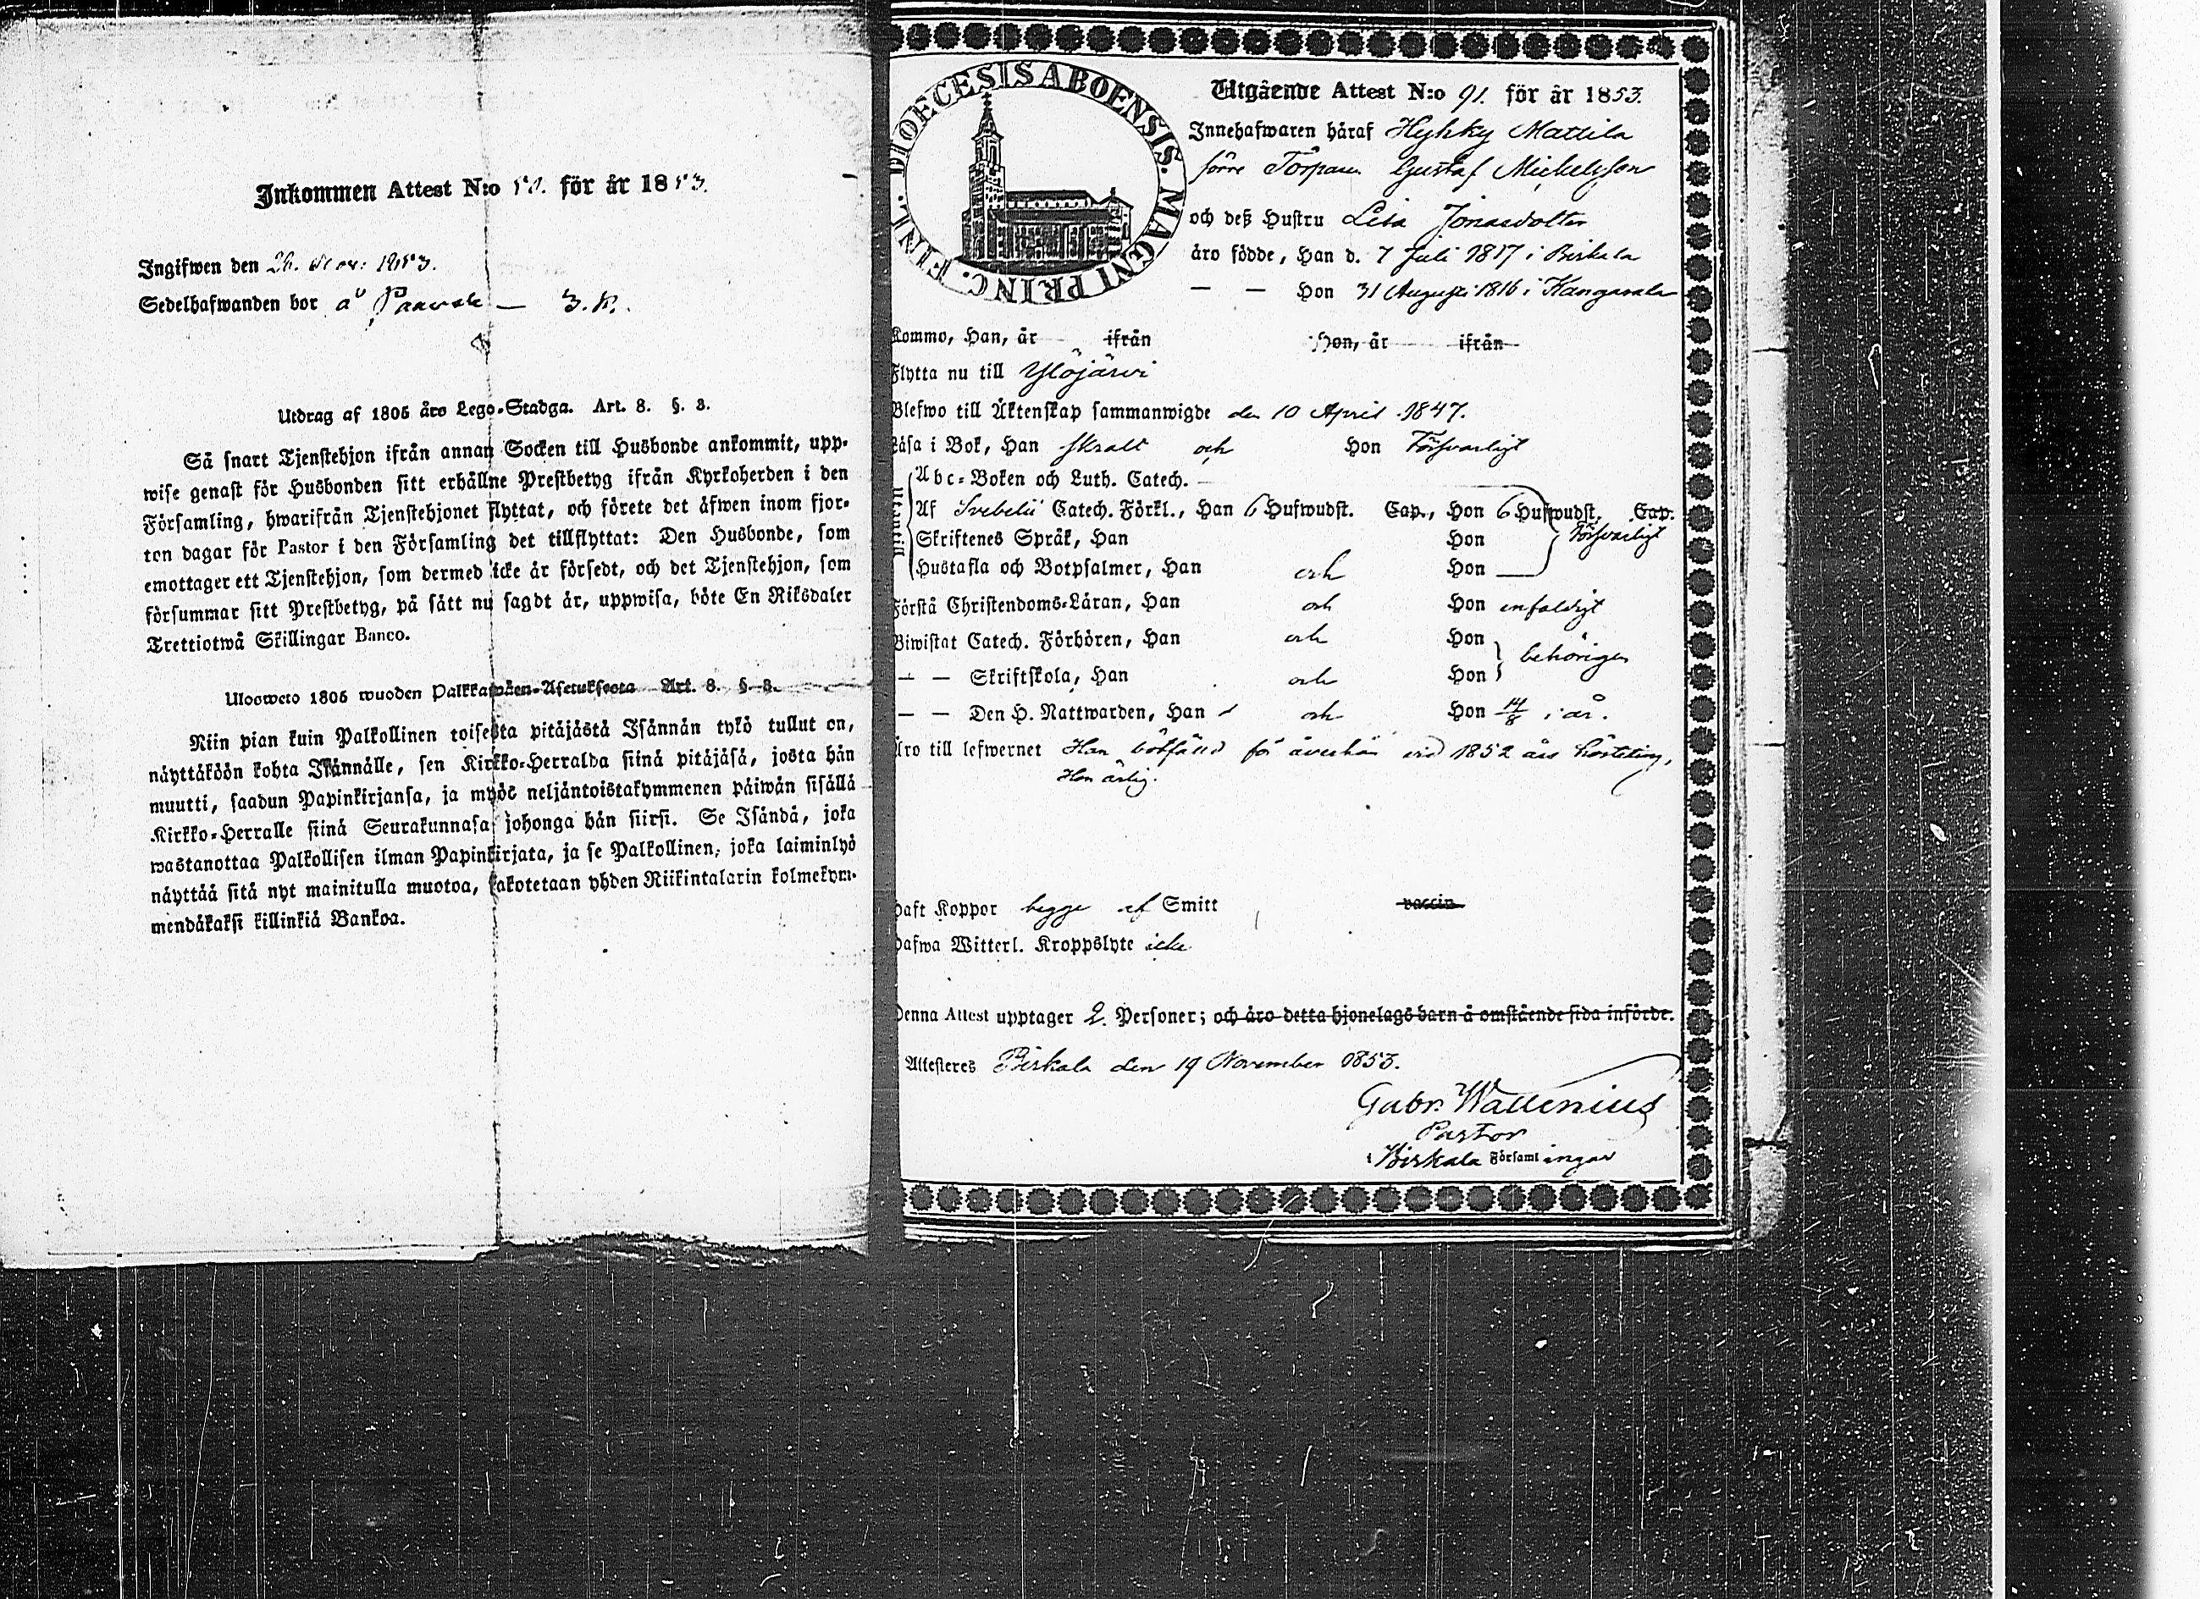 Inkommen Attest N:o för år 1853.
Ingifwen den 26. Nov: 1853.
Sedelhafwanden bor å Paavola — 3. R.
Utdrag af 1805 åro Lego-Stadga. Art. 8. §. 3.
Så snart Tjenstehjon ifrån annan Socken till Husbonde ankommit, upp-
wise genast för Husbonden sitt erhållne Prestbetyg ifrån Kyrkoherden i den
Församling, hwarifrån Tjenstehjonet flyttat, och förete det äfwen inom fjor-
ton dagar för Pastor i den Församling det tillflyttat: Den Husbonde, som
emottager ett Tjenstehjon, som dermed icke är försedt, och det Tjenstehjon, som
försummar sitt Prestbetyg, på sätt nu sagdt är, uppwisa, böte En Riksdaler
Trettiotwå Skillingar Banco.
Ulosweto 1805 wuoden Palkkawäen-Asetuksesta Art. 8. § 3.
Niin pian kuin Palkollinen toisesta pitäjästä Isännän tykö tullut on,
näyttäköön kohta Isännälle, sen Kirkko-Herralda siinä pitäjäsä, josta hän
muutti, saadun Papinkirjansa, ja myös neljäntoistakymmenen päiwän sisällä
Kirkko-Herralle siinä Seurakunnasa johonga hän siirsi. Se Isändä, joka
wastanottaa Palkollisen ilman Papinkirjata, ja se Palkollinen, joka laiminlyö
näyttää sitä nyt mainitulla muotoa, sakotetaan yhden Riikintalarin kolmekym-
mendäkaksi killinkiä Bankoa.
DIOECESIS ABOENSIS. MAGNI PRINC. FINL.
Utgående Attest N:o 91. för år 1853.
Innehafwaren häraf Hyhky Mattila
förre Torparen Gustaf Mickelsson
och deß Hustru Lisa Jonasdotter
äro födde, Han d. 7 Juli 1817 i Birkala
— — Hon 31 Augusti 1816 i Kangasala
Kommo, Han, år ifrån Hon, år ifrån
Flytta nu till Ylöjärvi
Blefwo till Äktenskap sammanwigde den 10 April 1847.
Läsa i Bok, Han skralt och Hon Försvarligt
Utantill
Abc-Boken och Luth. Catech.
Af Svebelii Catech. Förkl., Han 6 Hufwudst. Cap., Hon 6 Hufwudst. Cap.
Skriftenes Språk, Han Hon Försvarligt
Hustafla och Botpsalmer, Han och Hon
Förstå Christendoms-Läran, Han och Hon enfaldigt
Biwistat Catech. Förhören, Han och Hon
— — Skriftskola, Han och Hon behörigen
— — Den H. Nattwarden, Han och Hon 14/8 i år.
Äro till lefwernet Han bötfälld för åverkan vid 1852 års hösteting,
Hon ärlig.
Haft Koppor begge af Smitt vaccin
Hafwa Witterl. Kroppslyte icke
Denna Attest upptager 2. Personer; och äro detta hjonelags barn å omstående sida införde.
Attesteres Birkala den 19 November 1853.
Gabr. Wallenius
Pastor
i Birkala Församlingar